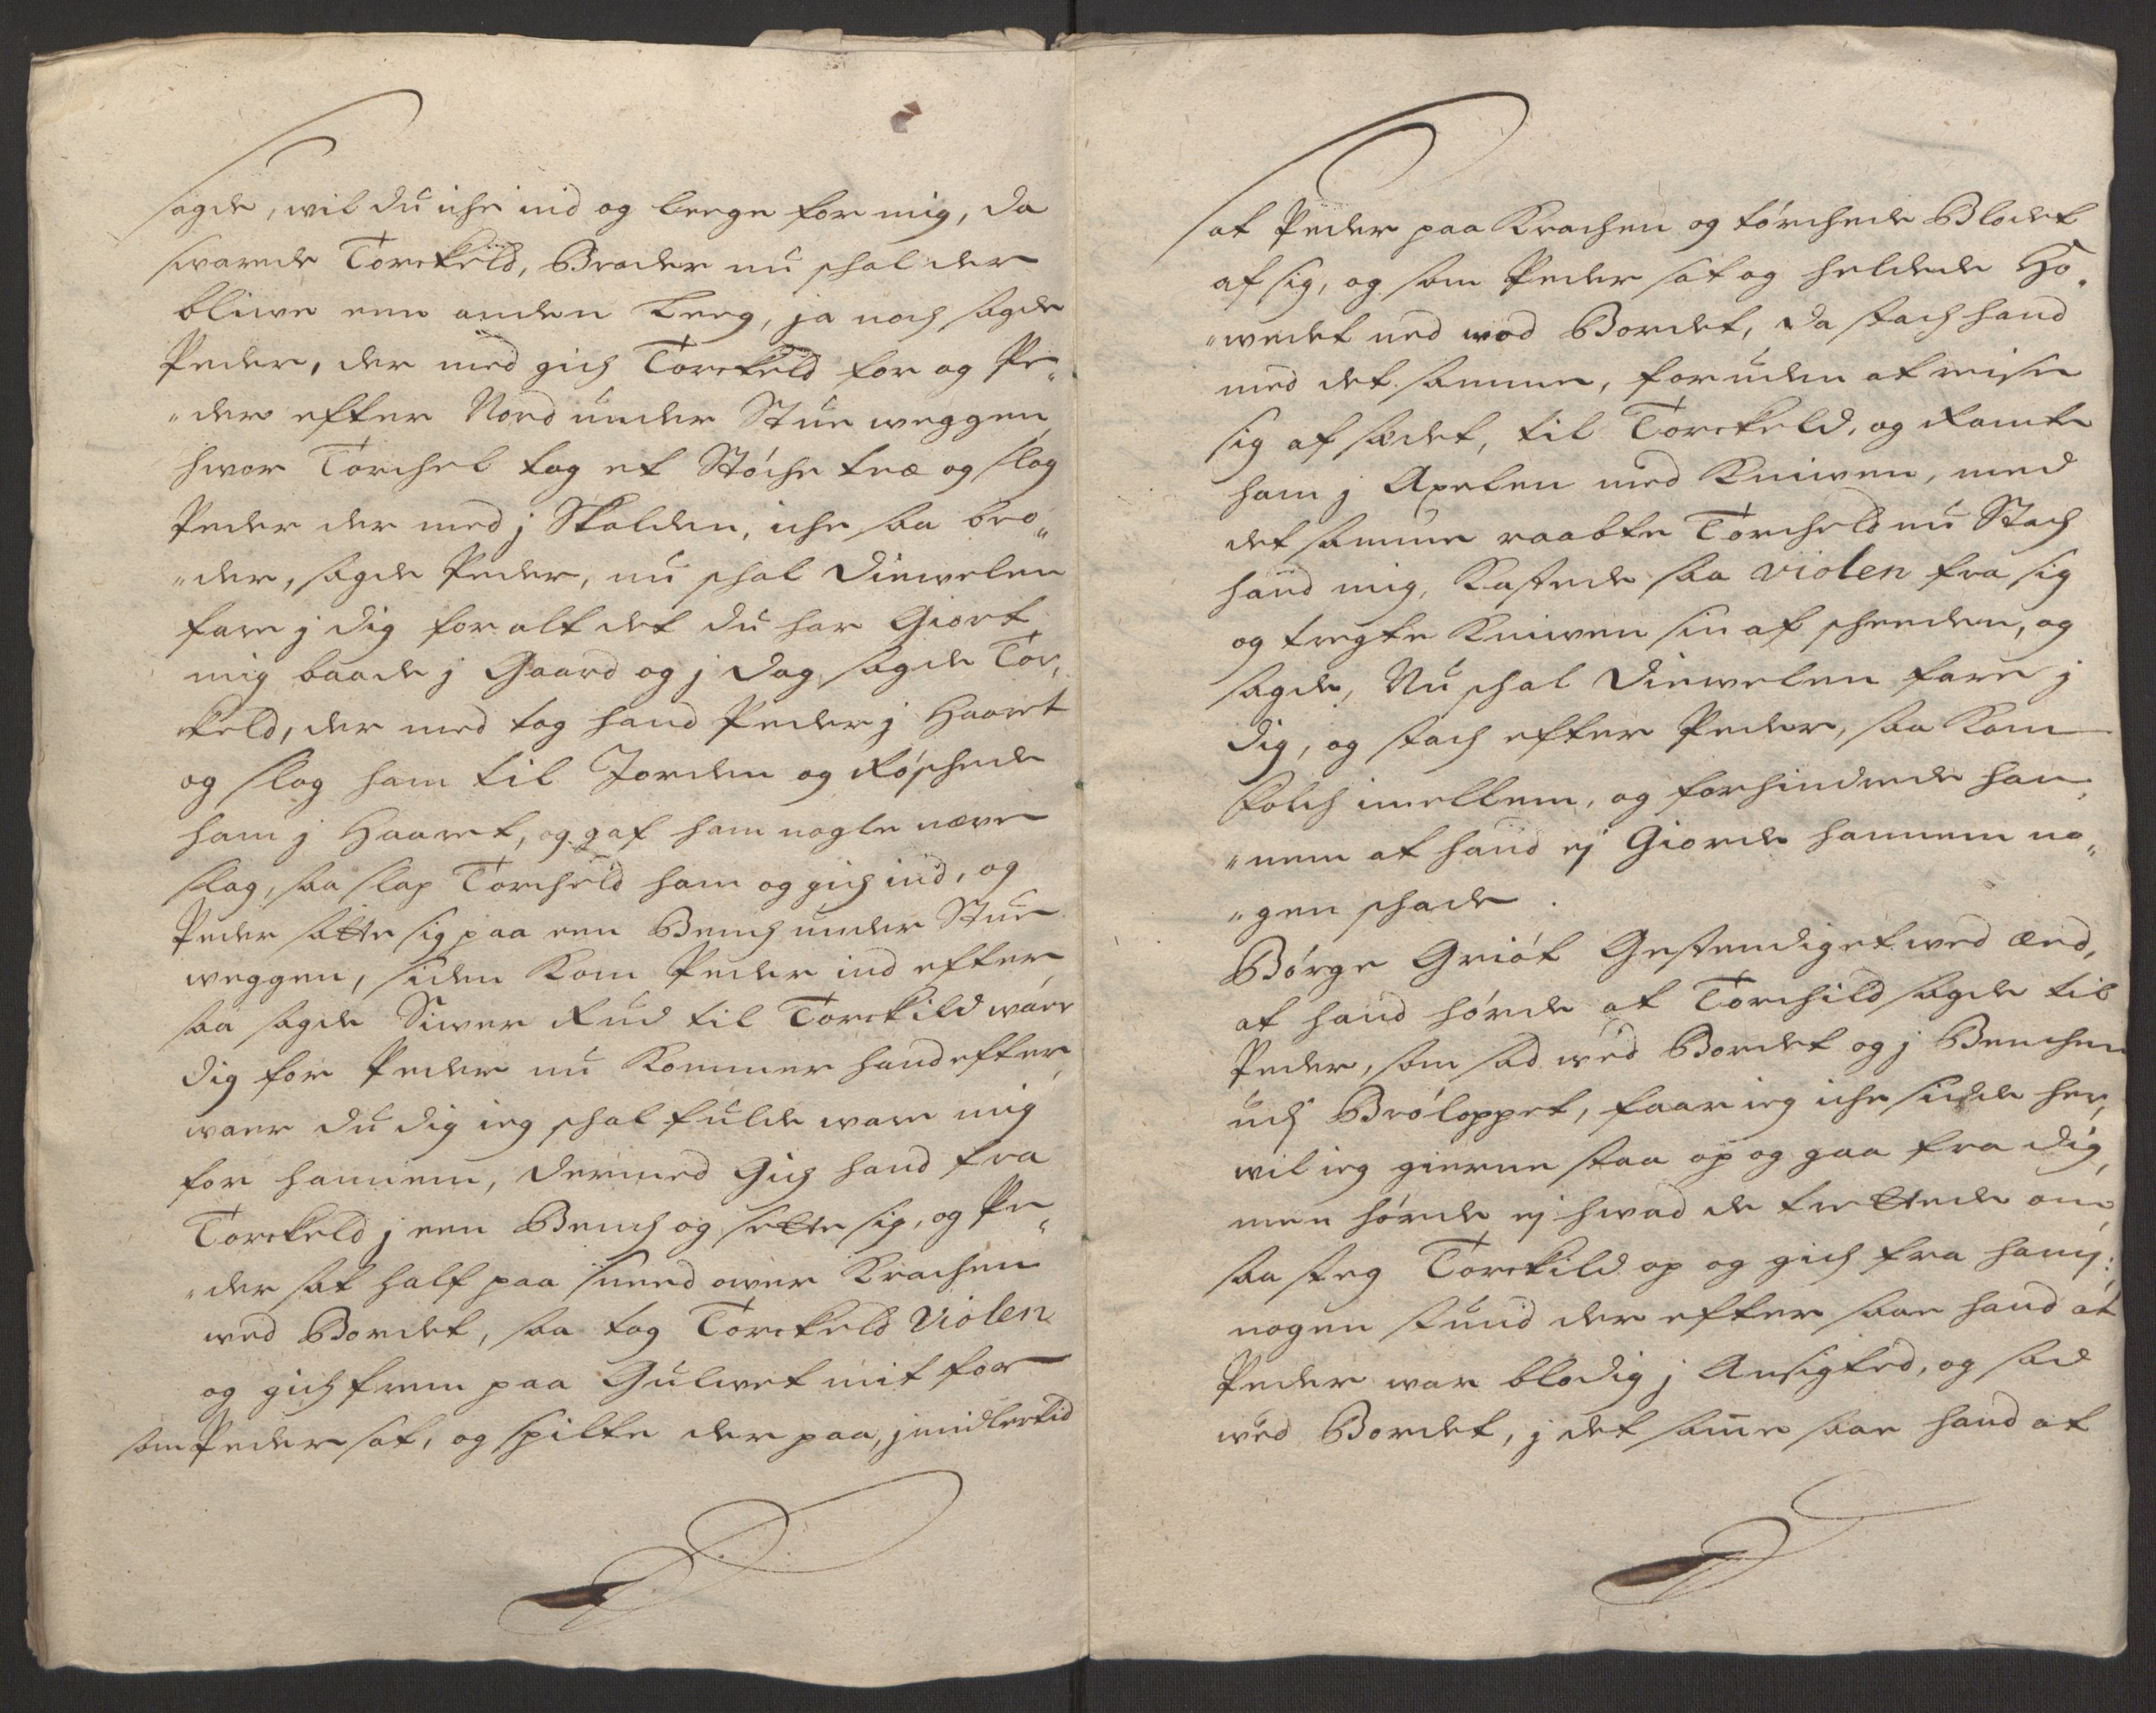 sagde, wil du iche ind og leege for mig, da
svarede Torckeld, Broder nu schal der
bliwe een anden Leeg, ja noch sagde
Peder, der med gich Torckeld for og Pe„
„der efter Nord under Stue weggen,
hwor Torchel tog et Støche træ og slog
Peder der med j Skolden, iche saa bro„
„der, sagde Peder, nu schal Diewelen
fare j dig for alt det du har Giort
mig baade j Gaard og j Dag, sagde Tor„
ckeld, der med tog hand Peder j Haaret
og slog ham til Jorden og Røschede
ham j Haaret, og gaf ham nogle næve
slag, saa slap Torcheld ham og gich ind, og
Peder satte sig paa een Bench under Stue
weggen, siden Kom Peder ind efter,
saa sagde Siwer Rud til Torckild waer
dig for Peder nu Kommer hand efter,
waer du dig ieg schal fulde ware mig
for hannem, dermed Gich hand fra
Torckeld j een Bench og sette sig, og Pe„
„der sat half paa sneed ower Krachen
wed Bordet, saa tog Torckeld Violen
og gich frem paa Gulwet mit for
som Peder sat, og spilte der paa, jmidlertid
sat Peder paa Krachen og tørchede Blodet
af sig, og som Peder sat og heldede Ho„
„wedet ned wed Bordet, da stach hand
med det samme, foruden at reise
sig af sædet, til Torckeld, og Ramte
ham j Axelen med Kniwen, med
det samme raabte Torcheld nu Stach
hand mig, Kastede saa violen fra sig
og tregte Kniwen sin af scheeden, og
sagde, Nu schal Diewelen fare j
dig, og stach efter Peder, saa Kom
Folch imellem, og forhindrede han„
„nem at hand ej Giorde hannem no„
„gen schade.
Børge Griøt Gestendiget wed æed,
at hand hørde at Torchild sagde til
Peder, som sad wed Bordet og j Benchen
udj Brøloppet, faar ieg iche sidde her,
wil ieg gierne staa op og gaa fra dig,
men hørde ej hwad de trettede om,
saa steg Torckild op og gich fra ham:
nogen stund der efter saae hand at
Peder war blodig j Ansigted, og sad
wed Bordet, j det same saae hand at